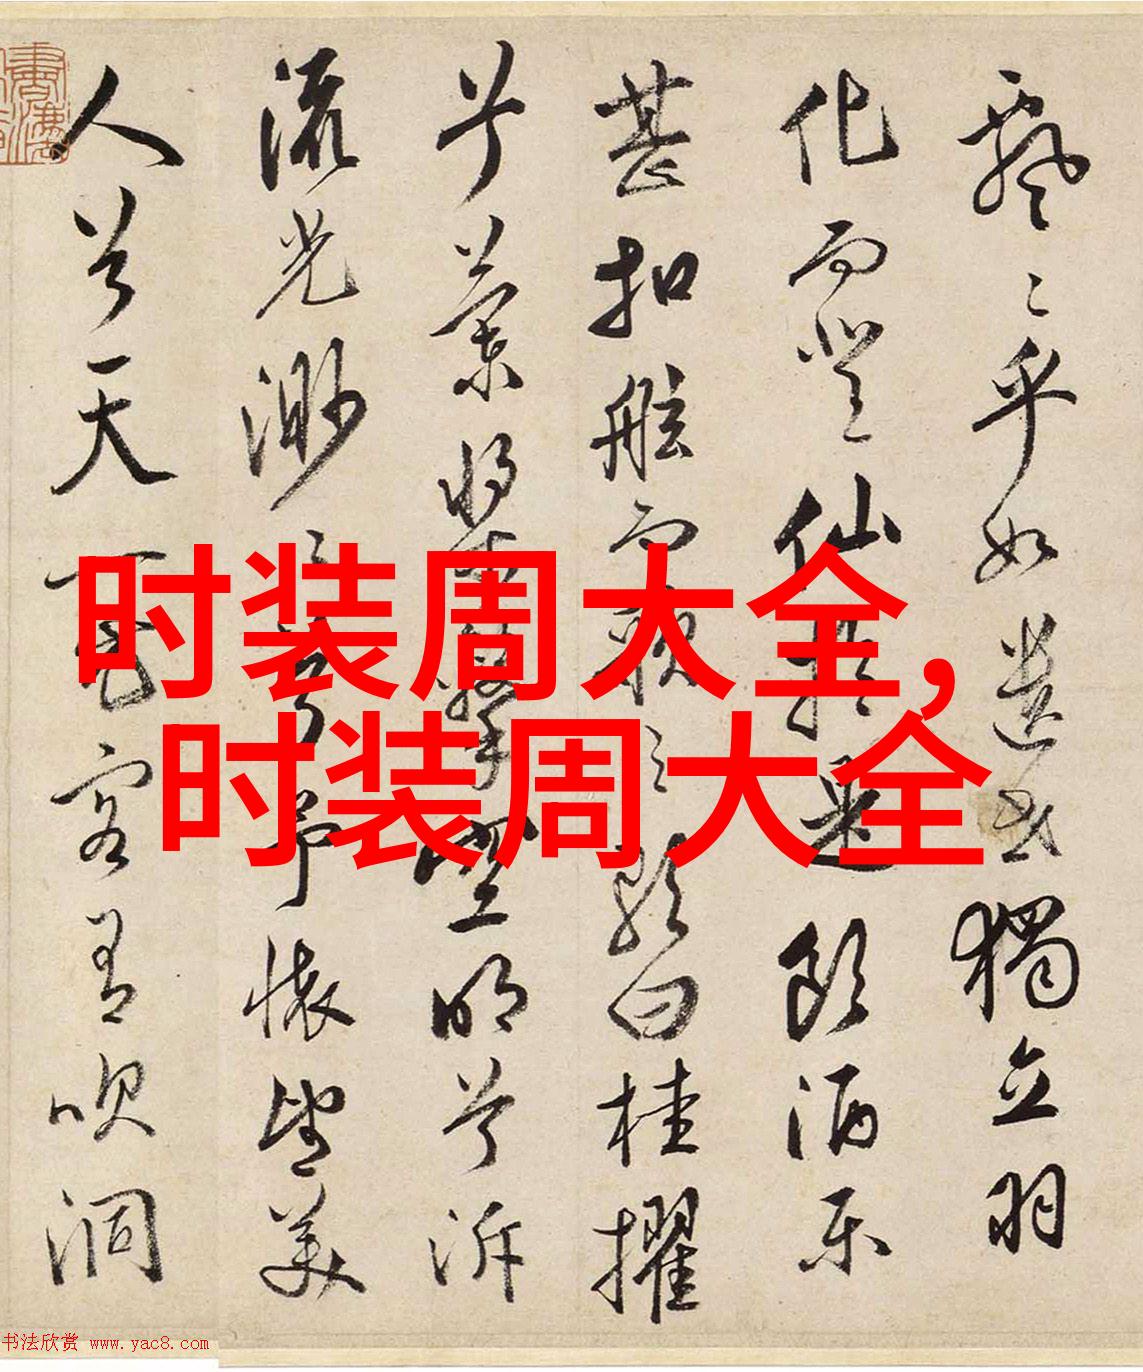 飄〻乎如遺世獨立羽
化而登仙於是飲酒樂
甚扣舷而歌之歌曰桂擢
兮蘭槳擊空明兮泝
流光渺〻兮予懷望美
人兮天一方客有吹洞
时装周大全,
时装周大全
书法欣赏 www.yac8.com